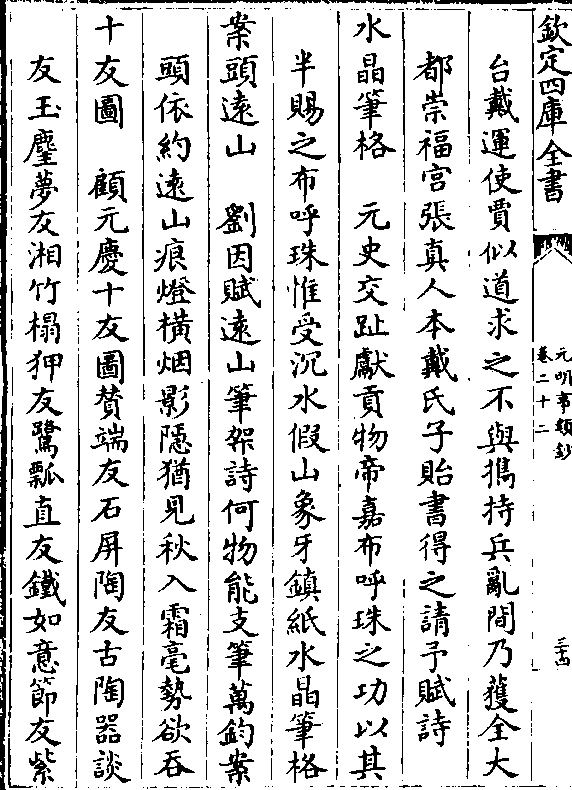 欽定四庫全書
元明事類鈔
卷二十二
三十四
台戴運使賈似道求之不與携持兵亂間乃獲全大
都崇福宫張真人本戴氏子貽書得之請予賦詩
水晶筆格　元史交趾獻貢物帝嘉布呼珠之功以其
半賜之布呼珠惟受沉水假山象牙鎮紙水晶筆格
案頭遠山　劉因賦遠山筆架詩何物能支筆萬鈞案
頭依約遠山痕燈橫烟影隱猶見秋入霜毫勢欲吞
十友圖　顧元慶十友圖贊端友石屏陶友古陶器談
友玉麈夢友湘竹榻狎友鷺瓢直友鐵如意節友紫